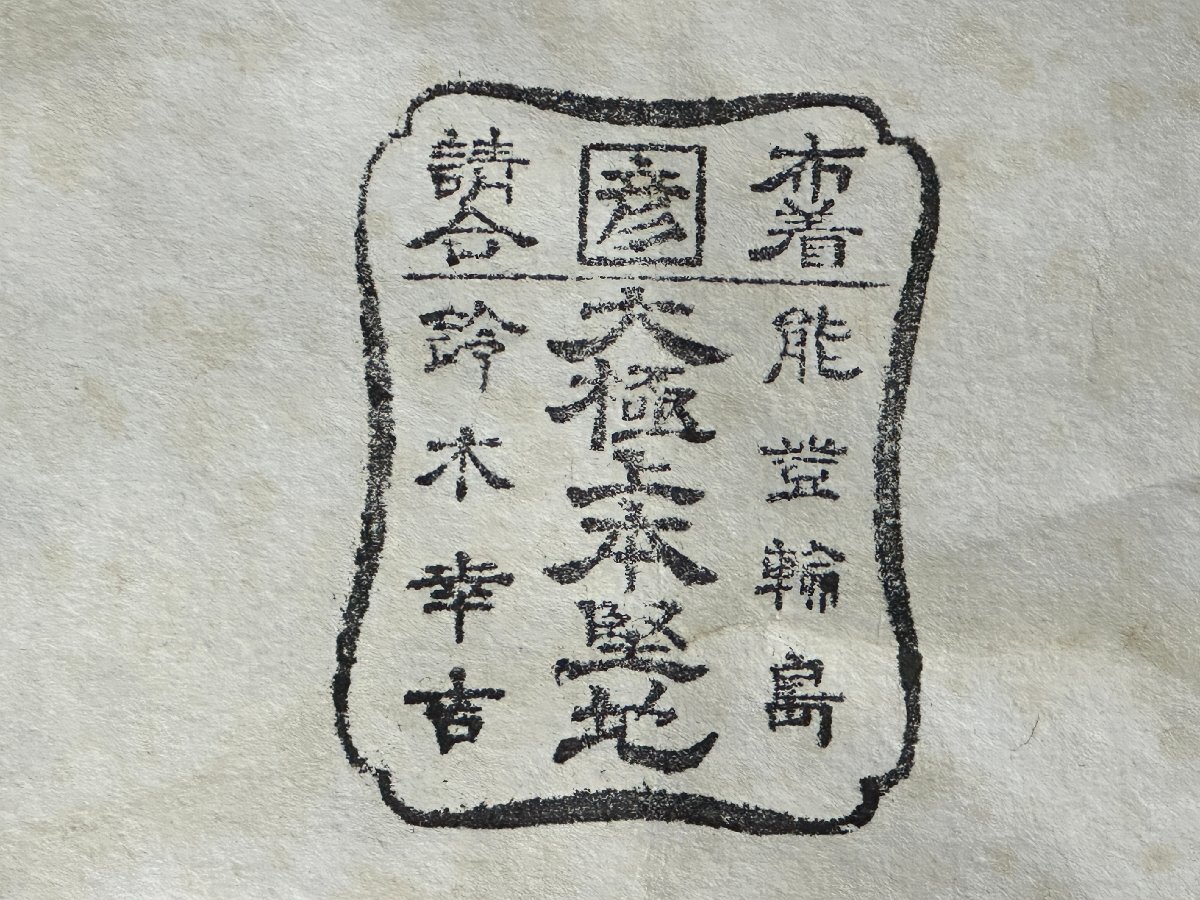 布着
能登輪島
彦
大極上本堅地
請合
鈴木幸吉